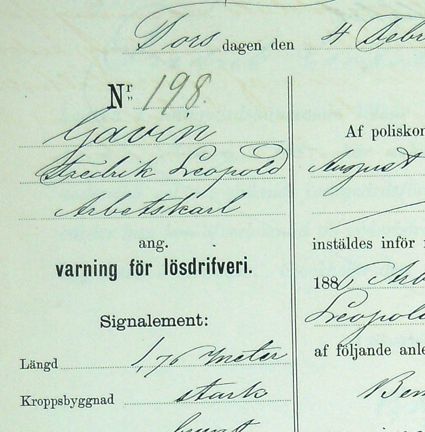 Torsdagen den 4 Febr
Nr 198.
Gavin
Fredrik Leopold
Arbetskarl
ang.
varning för lösdrifveri.
Signalement:
Längd 1,76 meter
Kroppsbyggnad stark
Af poliskon
August
instäldes inför
1886 Arb
Leopold
af följande anle